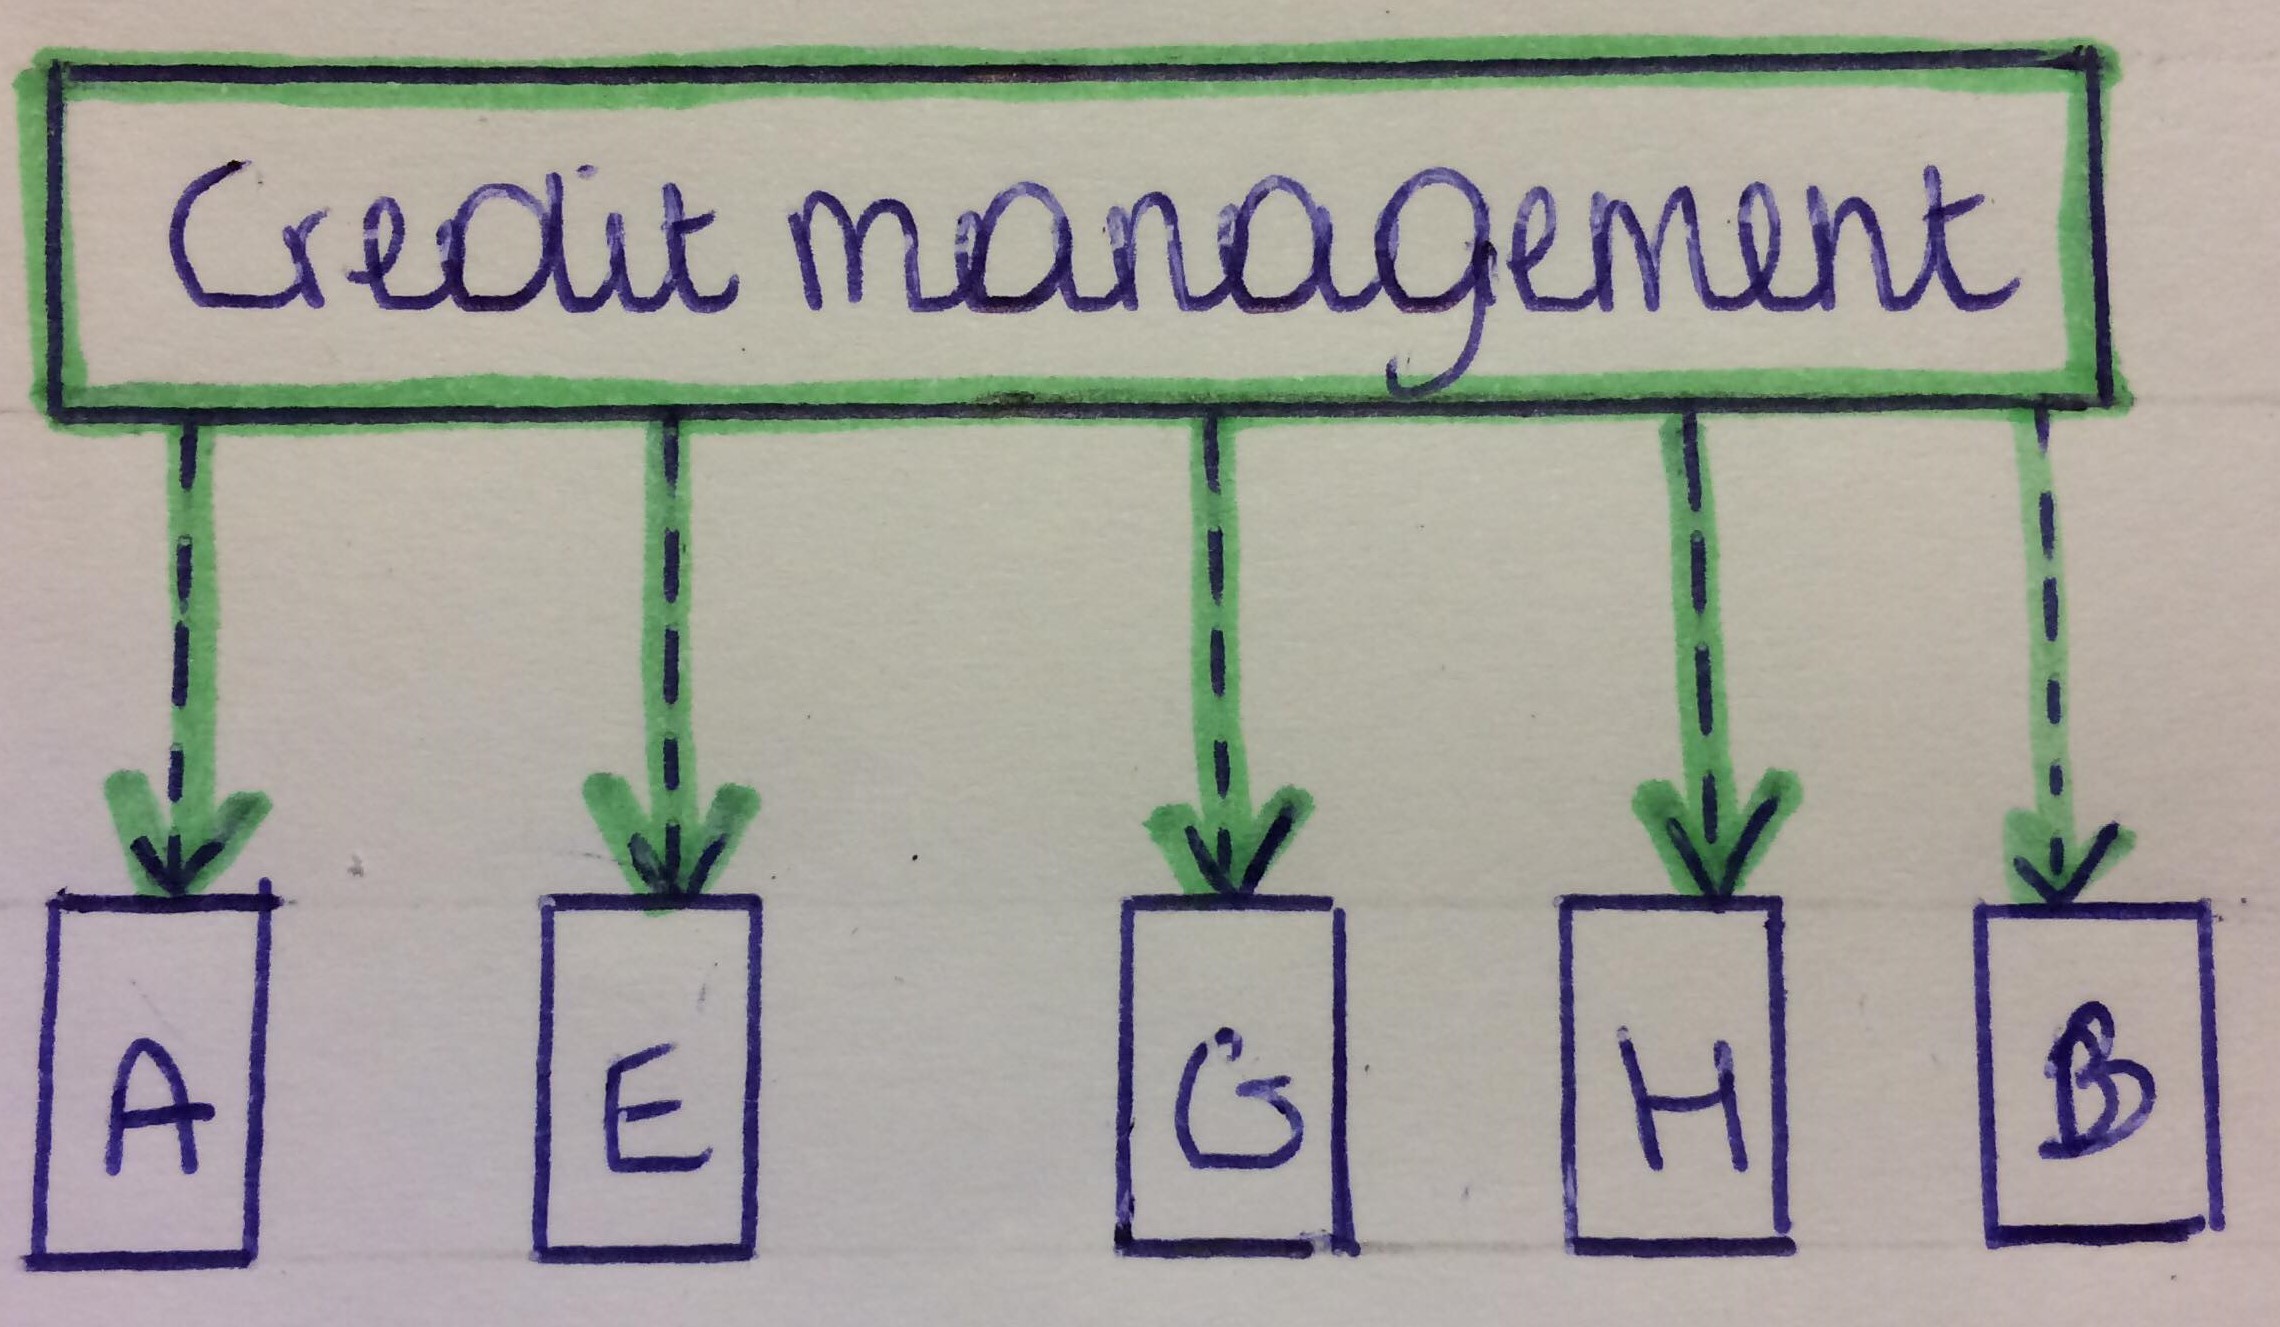 Credit management
A E G H B